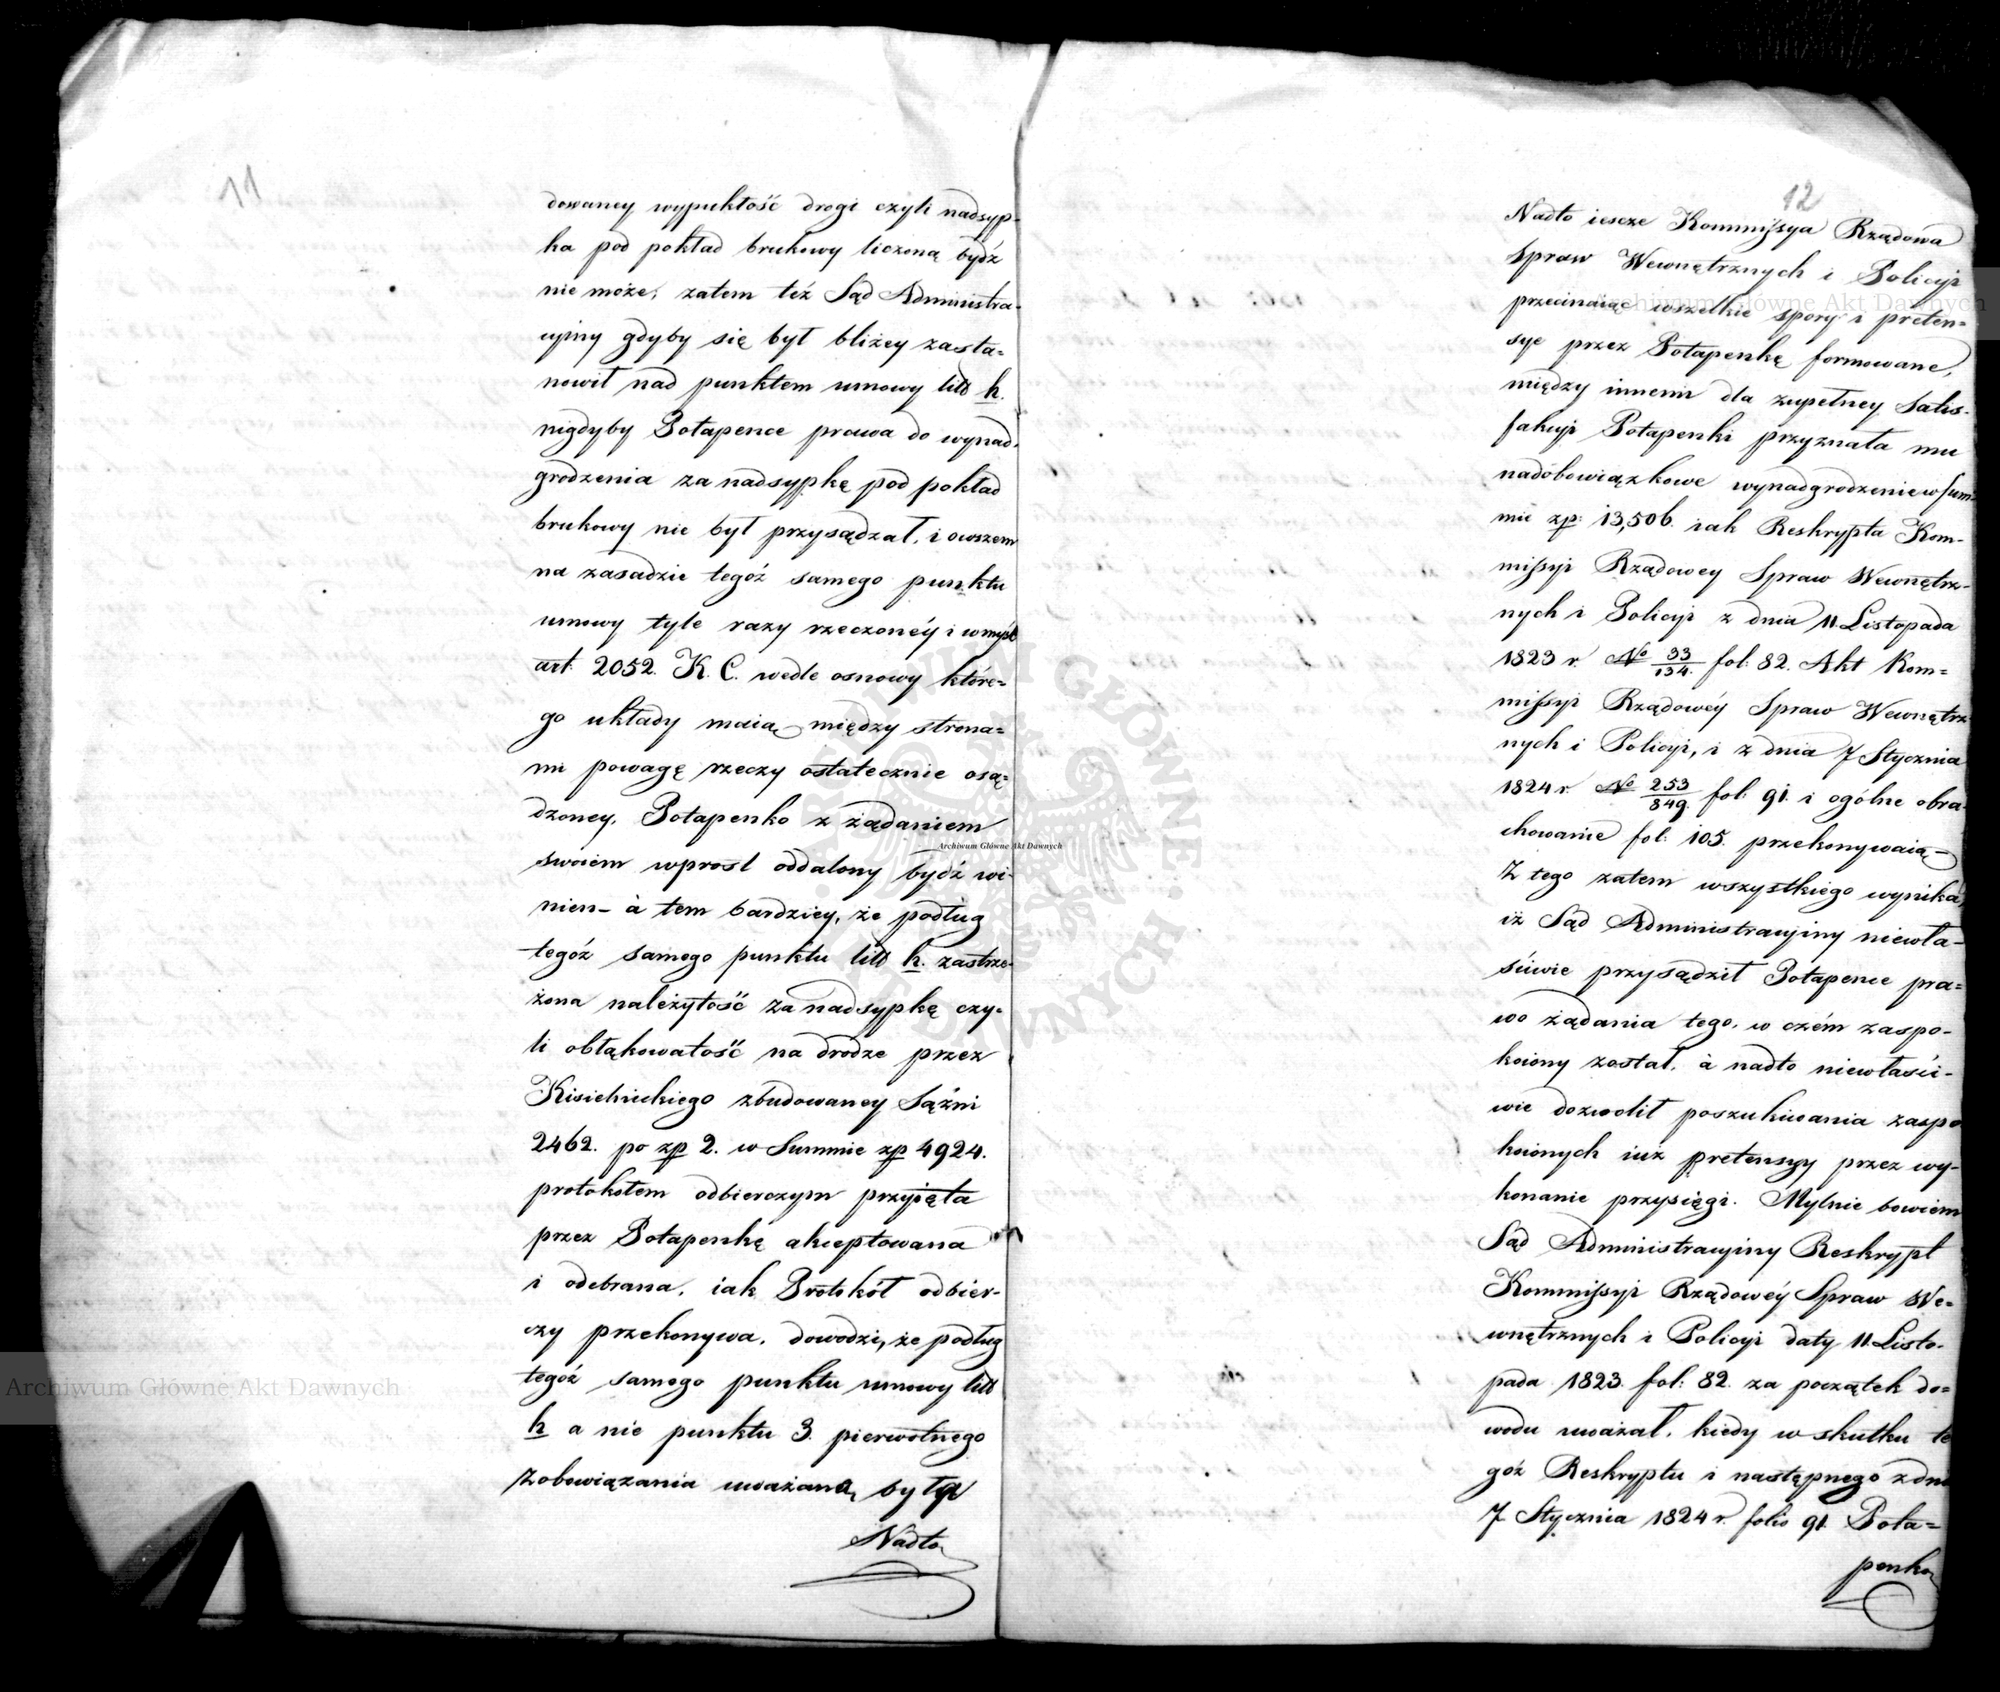 11
dowaney wypukłość drogi czyli nadsyp-
ka pod pokład brukowy liczoną bydź
nie może, zatem też Sąd Administra-
cyiny gdyby się był bliżey zasta=
nowił nad punktem umowy litt h.
nigdyby Potapence prawa do wynad-
grodzenia za nadsypkę pod pokład
brukowy nie był przysądzał, i owszem
na zasadzie tegóż samego punktu
umowy tyle razy rzeczonéy i w myśl
art: 2052. K. C. wedle osnowy które=
go układy maią między strona=
mi powagę rzeczy ostatecznie osą=
dzoney, Potapenko z żądaniem
swoiem wprost oddalony bydź wi-
nien - à tem bardziey, że podług
tegóż samego punktu litt h. zastrze-
żona należytość za nadsypkę czy-
li obłąkowatość na drodze przez
Kisielnickiego zbudowaney Sążni
2462. po zp 2. w Summie zp 4924.
protokołem odbierczym przyięta
przez Potapenkę akceptowana
i odebrana, iak Protokół odbier-
czy przekonywa, dowodzi, że podług
tegóż samego punktu umowy litt
h a nie punktu 3. pierwotnego
Zobowiązania uważaną była
Nadto
12
Nadto iescze Kommissya Rządowa
Spraw Wewnętrznych i Policyi
przecinaiąc wszelkie spory i preten=
sye przez Potapenkę formowane,
między innemi dla zupełney Satis-
fakcyi Potapenki przyznała mu
nadobowiązkowe wynadgrodzenie w Sum-
mie zp: 13,506. iak Reskrypta Kom-
missyi Rządowey Spraw Wewnętrz-
nych i Policyi z dnia 11. Listopada
1823 r. No 33/134. fol: 82. Akt Kom=
missyi Rządowéy Spraw Wewnętrz
nych i Policyi, i z dnia 7 Stycznia
1824 r. No 253/849. fol: 91. i ogólne obra-
chowanie fol: 105. przekonywaią -
Z tego zatem wszystkiego wynika,
iż Sąd Administracyiny niewła-
ściwie przysądził Potapence pra=
wo żądania tego, w czém zaspo-
koiony został, à nadto niewłaści-
wie dozwolił poszukiwania zaspo
koionych iuż pretensyy przez wy-
konanie przysięgi. Mylnie bowiem
Sąd Administracyiny Reskrypt
Kommissyi Rządowéy Spraw We-
wnętrznych i Policyi daty 11. Listo-
pada 1823. fol: 82. za początek do=
wodu uważał, kiedy w skutku te
goż Reskryptu i następnego z dnia
7 Stycznia 1824 r. folio 91. Pota=
penko
Archiwum Główne Akt Dawnych
Archiwum Główne Akt Dawnych
Archiwum Główne Akt Dawnych